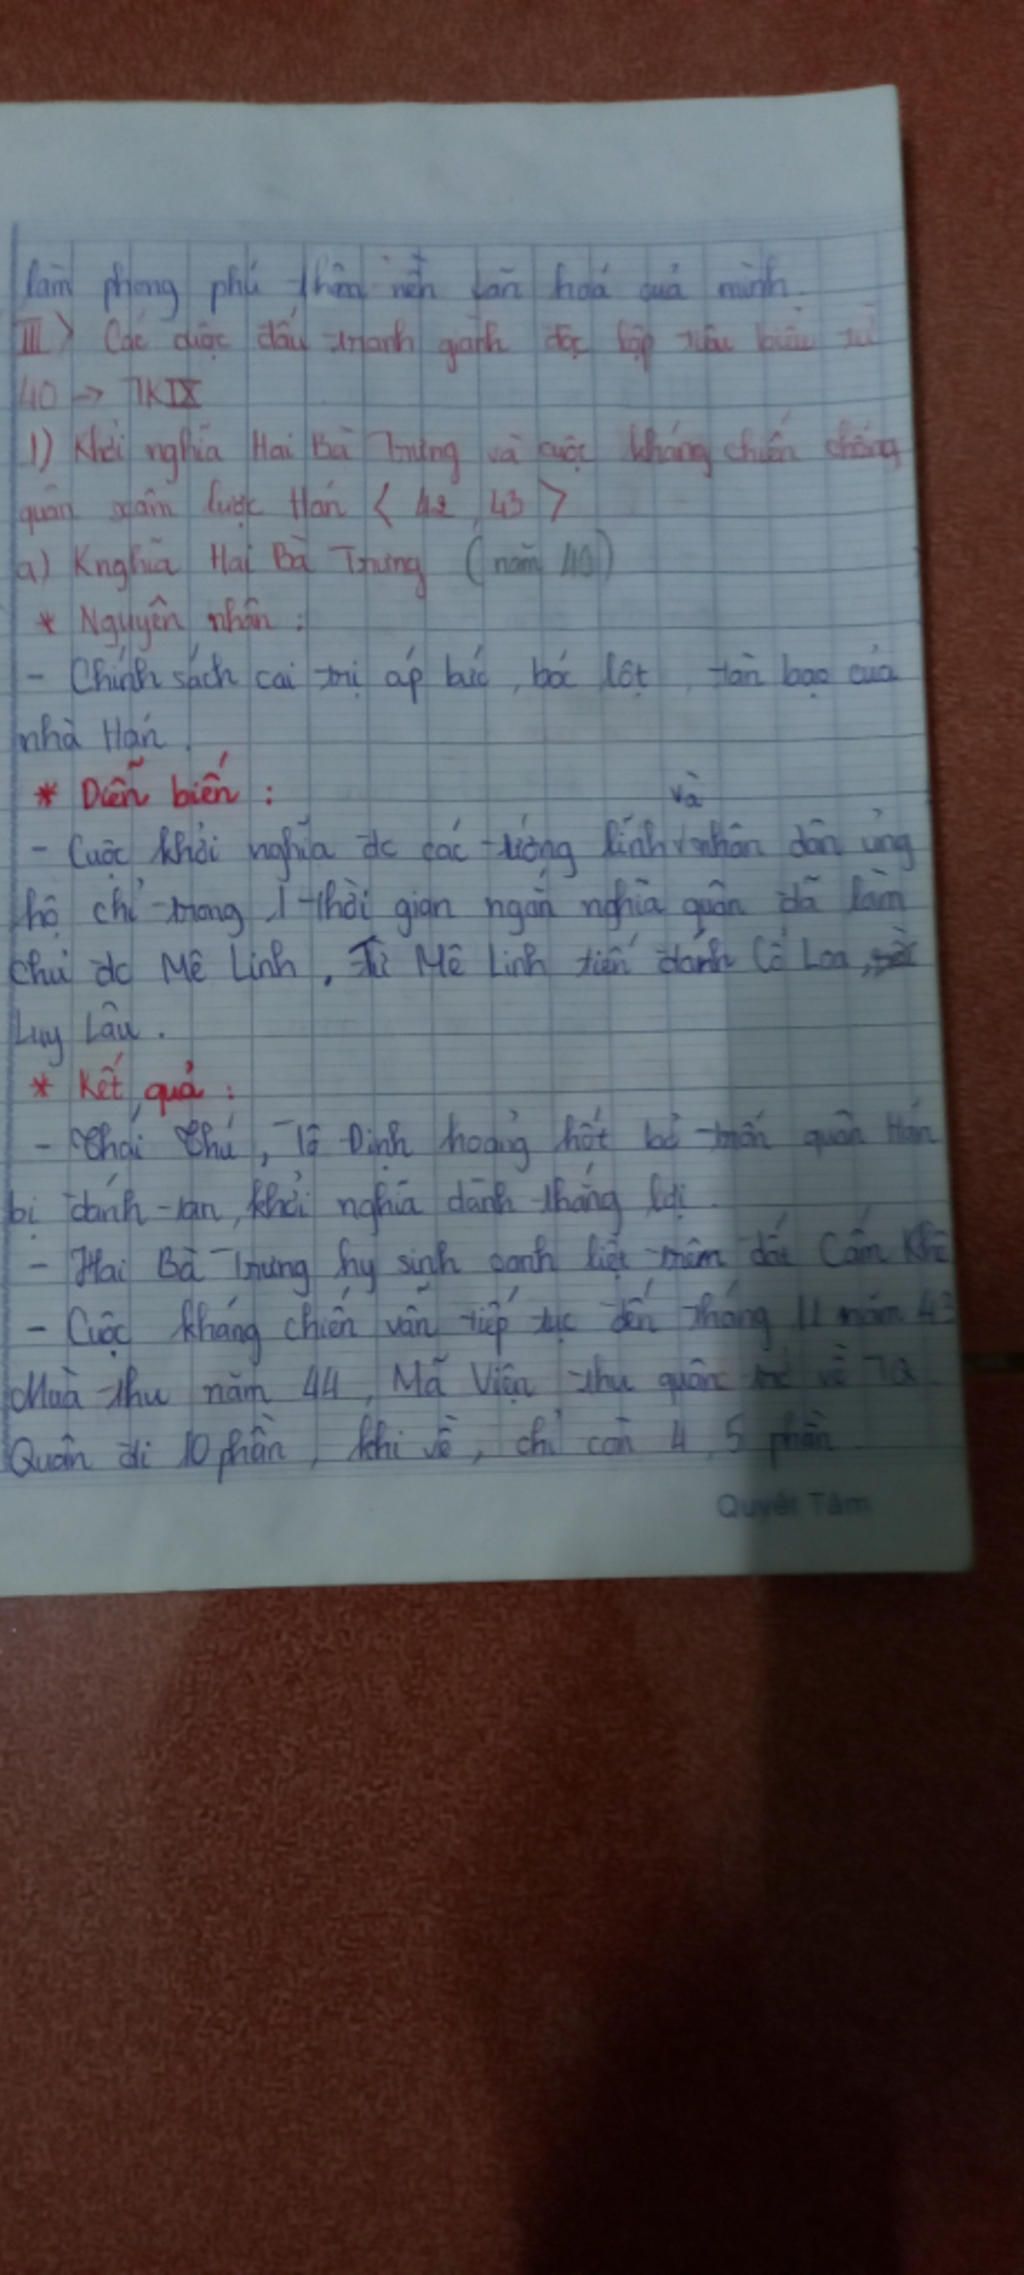 làm phong phú thêm nền văn hoá quả mình.
III) Các cuộc đấu tranh giành độc lập tiêu biểu từ
40 → TKIX
1) Khởi nghĩa Hai Bà Trưng và cuộc kháng chiến chống
quân xâm lược Hán < 42, 43 >
a) Knghĩa Hai Bà Trưng (năm 40)
* Nguyên nhân :
- Chính sách cai trị áp bức, bóc lột, tàn bạo của
nhà Hán.
* Diễn biến :
và
- Cuộc khởi nghĩa đc các tướng lĩnh √ nhân dân ủng
hộ chỉ trong 1 thời gian ngắn nghĩa quân đã làm
chủ đc Mê Linh, Từ Mê Linh tiến đánh Cổ Loa,
Luy Lâu.
* Kết quả :
- Thái Thú, Tô Định hoảng hốt bỏ trốn quân Hán
bị đánh tan, khởi nghĩa dành thắng lợi.
- Hai Bà Trưng hy sinh oanh liệt trên đất Cấm Khê
- Cuộc kháng chiến vẫn tiếp tục đến tháng 11 năm 43
Mùa thu năm 44, Mã Viện thu quân về TQ.
Quân đi 10 phần, khi về, chỉ còn 4, 5 phần.
Quyết Tâm